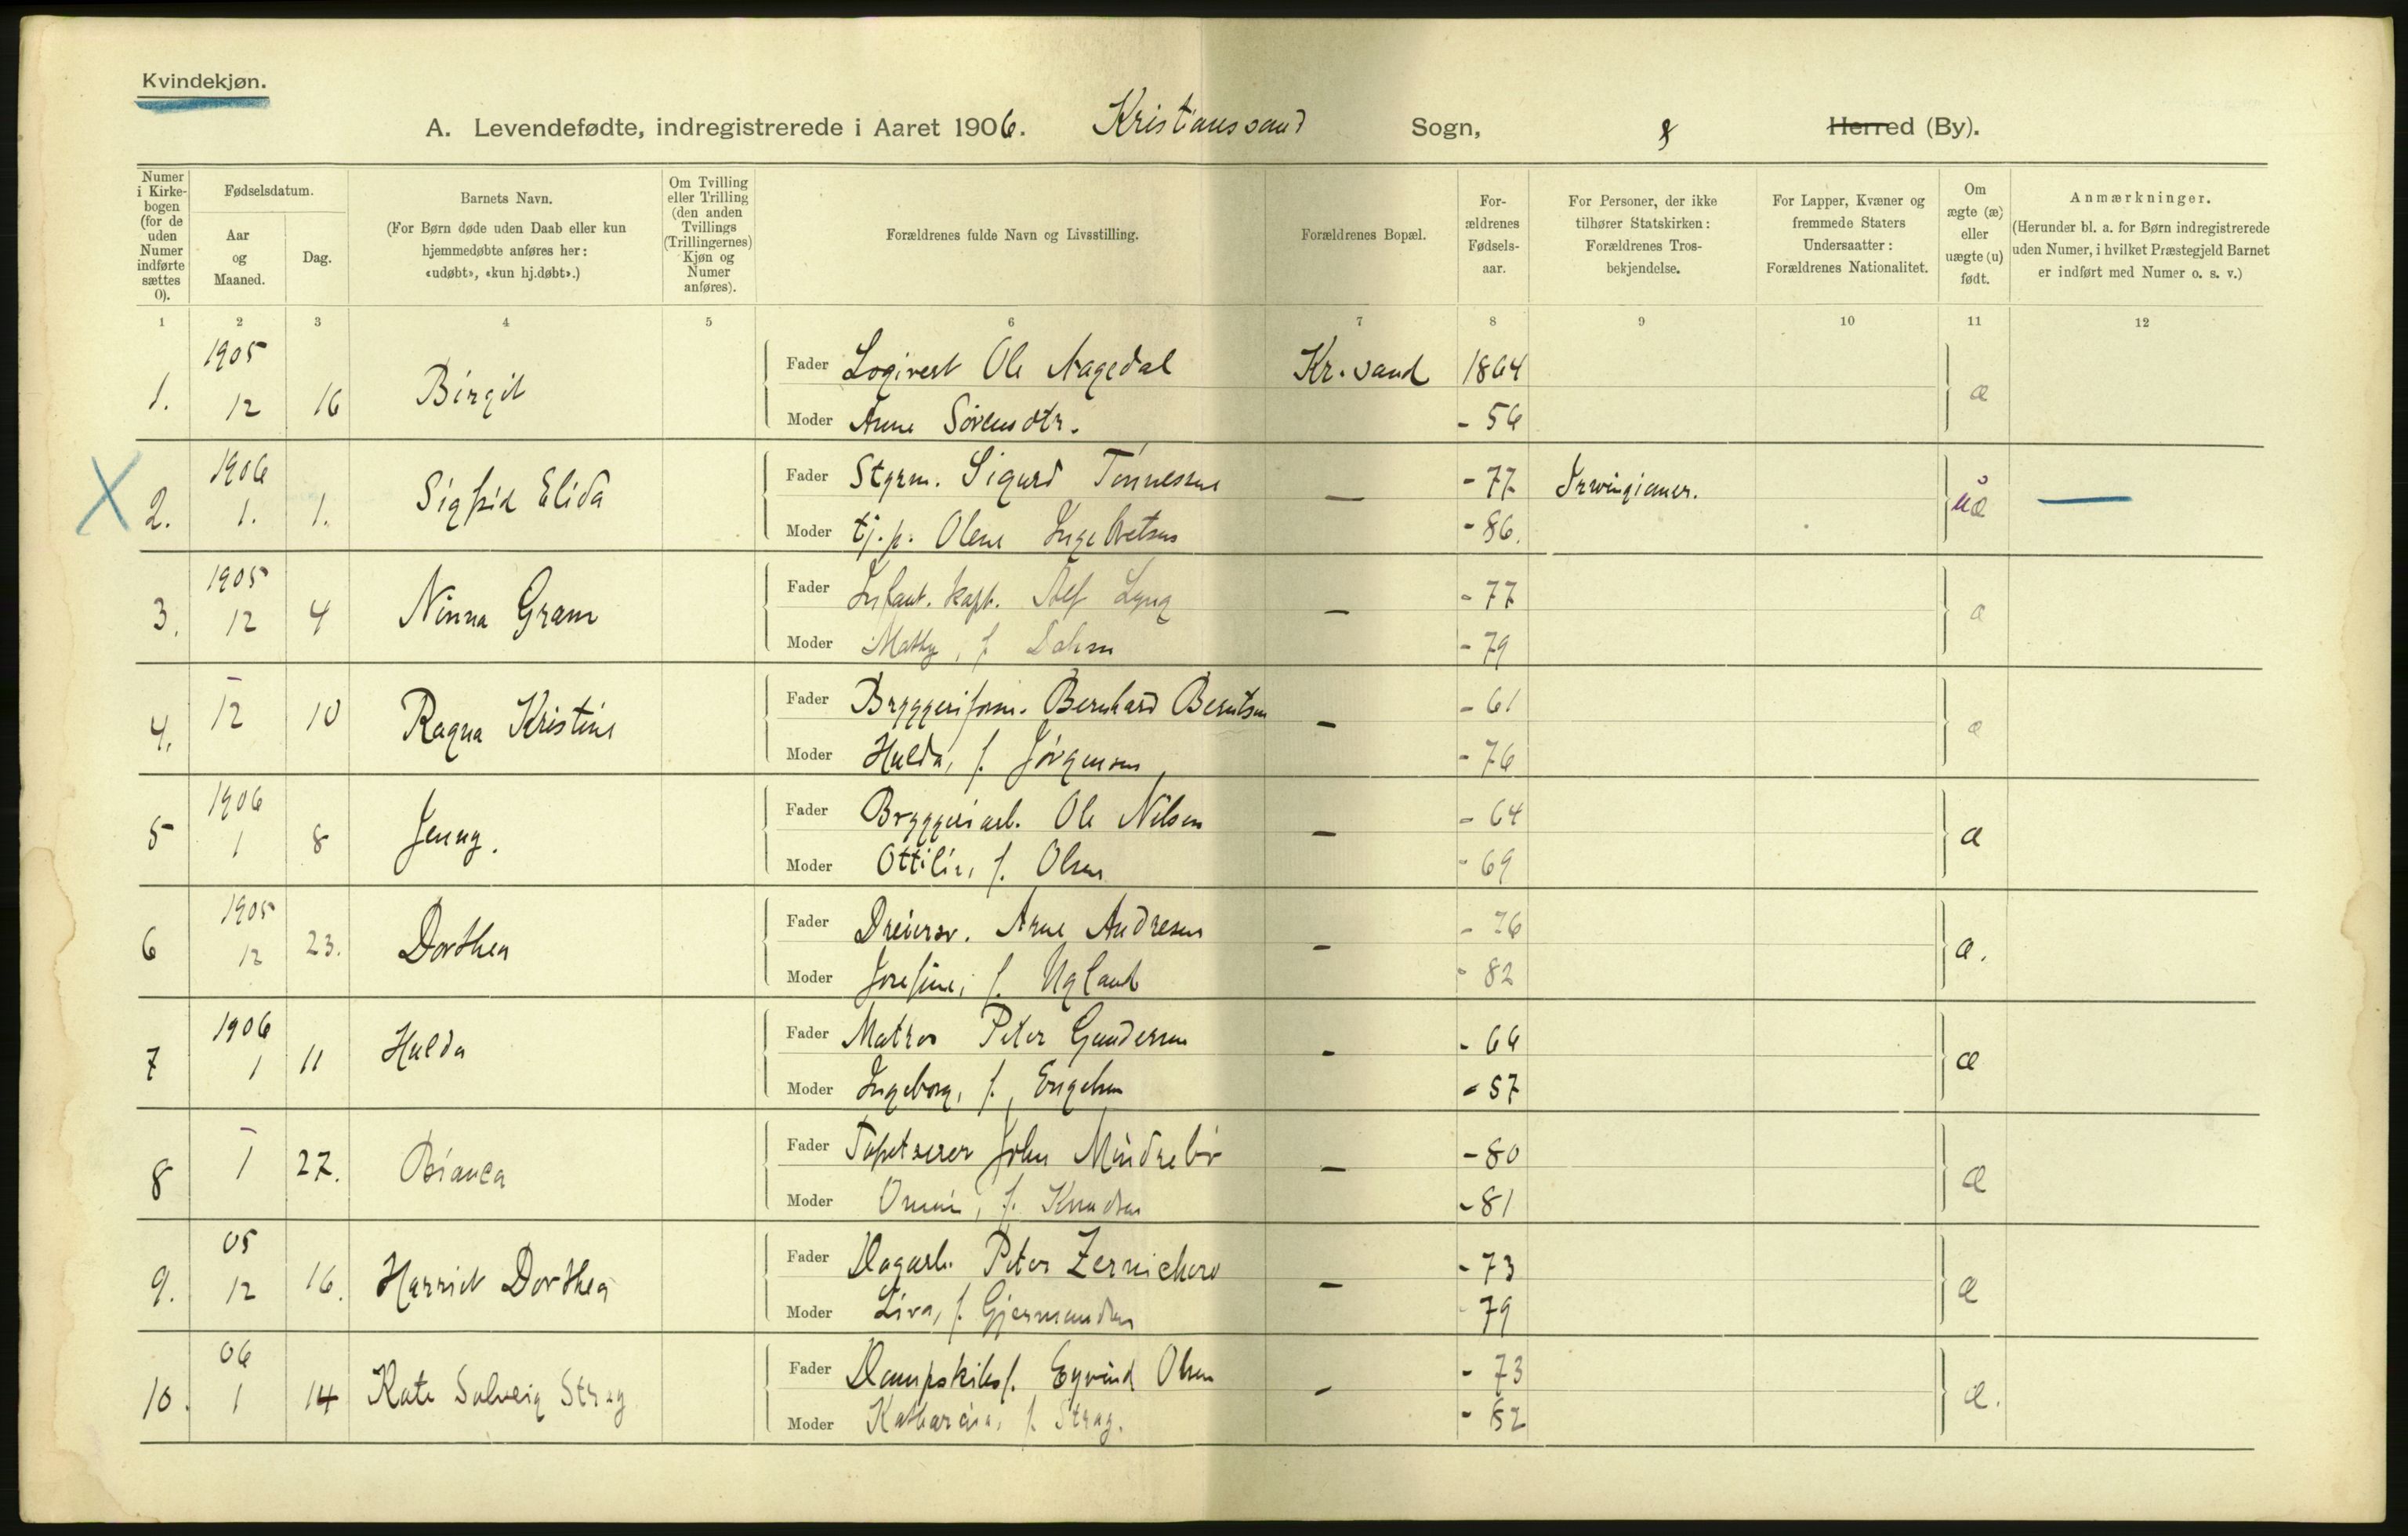 Kvindekjøn.
A. Levendefødte, indregistrerede i Aaret 1906. Kristianssand Sogn, Herred (By).
Numer i Kirkebogen (for de uden Numer indførte sættes 0).
Fødselsdatum.
Aar og Maaned.
Dag.
Barnets Navn.
(For Børn døde uden Daab eller kun hjemmedøbte anføres her: «udøbt», «kun hj.døbt».)
Om Tvilling eller Trilling (den anden Tvillings (Trillingernes) Kjøn og Numer anføres).
Forældrenes fulde Navn og Livsstilling.
Forældrenes Bopæl.
Forældrenes Fødselsaar.
For Personer, der ikke tilhører Statskirken: Forældrenes Trosbekjendelse.
For Lapper, Kvæner og fremmede Staters Undersaatter: Forældrenes Nationalitet.
Om ægte (æ) eller uægte (u) født.
Anmærkninger.
(Herunder bl. a. for Børn indregistrerede uden Numer, i hvilket Præstegjeld Barnet er indført med Numer o. s. v.)
1 2 3 4 5 6 7 8 9 10 11 12
1. 1905 12 16 Birgit Fader Logivert Ole Aagedal Kr.sand 1864 æ
Moder Anne Sörensdtr. - 56
2. 1906 1. 1. Sigfrid Elida Fader Styrm. Sigurd Tönnessen — - 77 Irwingianer. u
Moder tj.p. Olene Ingebretsen - 86.
3. 1905 12 4 Ninna Gram Fader Infant. kapt. Alf Lyng - - 77 æ
Moder Mathy, f. Dahm - 79
4. - 12 10 Ragna Kristine Fader Bryggeriform. Bernhard Berntsen - - 61 æ
Moder Hulda, f. Jörgensen - 76
5 1906 1 8 Jenny. Fader Bryggeriarb. Ole Nilsen - - 64 æ
Moder Ottilie, f. Olsen - 69
6 1905 12 23. Dorthea Fader Dreiersv. Arne Andresen - - 76 æ.
Moder Josefine, f. Ugland - 82
7 1906 1 11 Hulda Fader Matros Peter Gundersen - - 66 æ
Moder Ingeborg, f. Engelsen - 57
8 - 1 27. Bianca Fader Tapetserer John Mindrebö - - 80 æ
Moder f. Knudsen - 81
9. 05 12 16. Harriet Dorthea Fader Dagarb. Peter Zernichow - - 73 æ
Moder f. Gjermundsen - 79
10. 06 1 14 Kate Solveig Stray Fader Dampskibsf. Eyvind Olsen - - 73 æ.
Moder Katharina, f. Stray. - 82